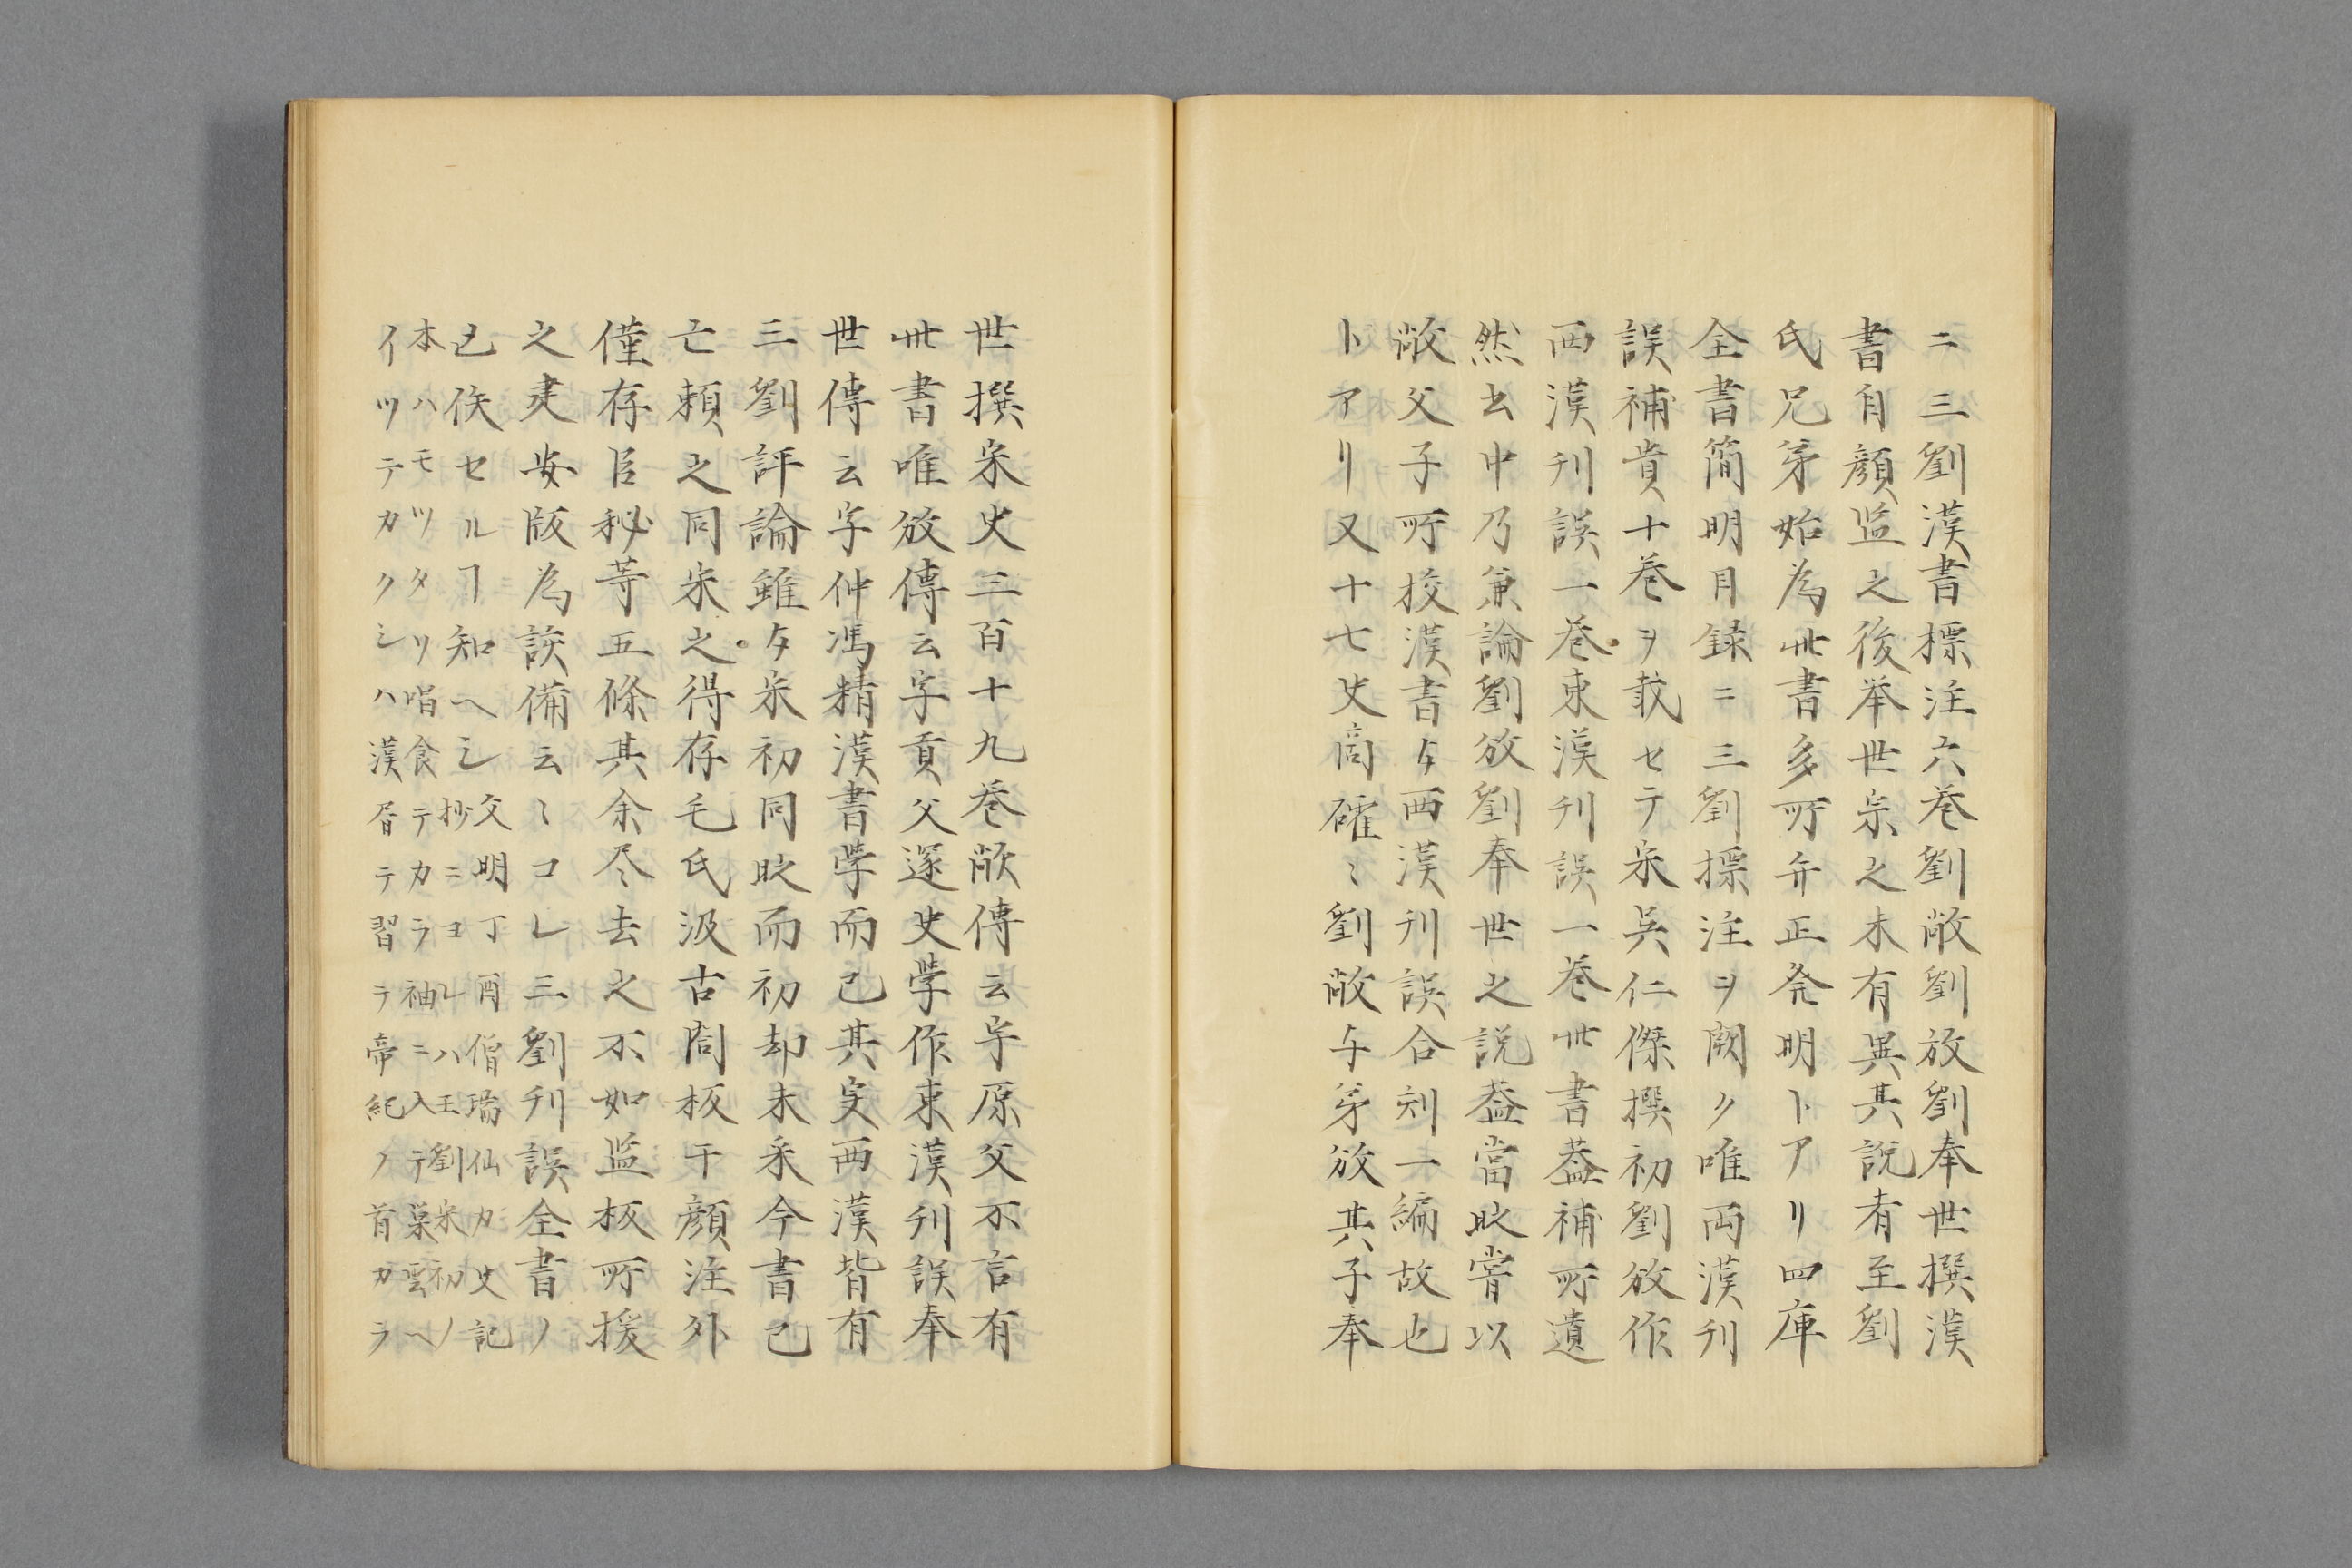 ニ三劉漢書標注六巻劉敞劉放劉奉世撰漢
書自顔監之後挙世宗之未有異其説者至劉
氏兄弟始為此書多所弁正発明トアリ四庫
全書簡明目録ニ三劉標注ヲ闕ク唯両漢刊
誤補貴十巻ヲ載セテ宋呉仁傑撰初劉攽作
西漢刊誤一巻東漢刊誤一巻此書蓋補所遺
然書中乃兼論劉攽劉奉世之説蓋當時嘗以
敞父子所校漢書与西漢刊誤合刻一編故也
トアリ又十七史商確〻劉敞与弟攽其子奉
世撰宋史三百十九巻敞傳云字原父不言有
此書唯攽傳云字貢父邃史学作東漢刊誤奉
世傳云字仲馮精漢書学而已其実両漢皆有
三劉評論雖与宋初同時而初却未采今書已
亡頼之同宋之得存毛氏汲古閣板于顔注外
僅存臣秘等五條其余尽去之不如監板所援
之建安版為詼備云〻コレ三劉刊誤全書ノ
已佚セルヿ知ヘシ
文明丁酉僧瑞仙カ史記
抄ニコレハ王劉宋初ノ
本ハモツタリ唱食テカラ袖ニ入テ巣雲ヘ
イツテカクシハ漢屑テ習ラ帝紀ノ首カラ